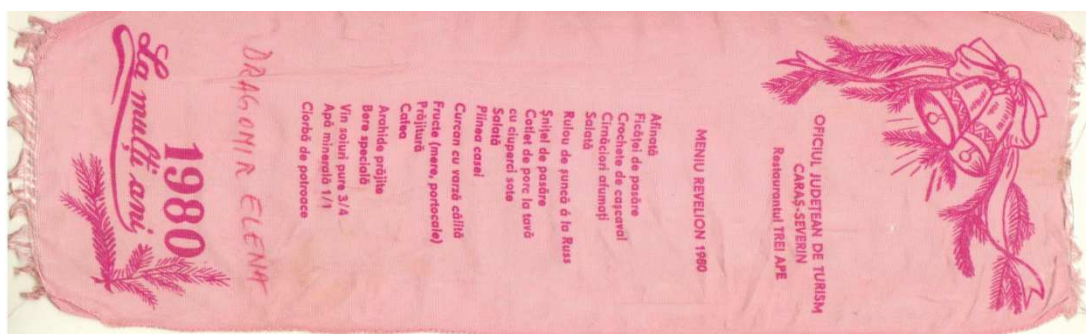 OFICIUL JUDEȚEAN DE TURISM
CARAȘ-SEVERIN
Restaurantul TREI APE
MENIU REVELION 1980
Afinată
Ficăței de pasăre
Crochete de cașcaval
Cîrnăciori afumați
Salată
Rulou de șuncă á la Russ
Șnițel de pasăre
Cotlet de porc la tavă
cu ciuperci sote
Salată
Pîinea casei
Curcan cu varză călită
Fructe (mere, portocale)
Prăjitură
Cafea
Arahide prăjite
Bere specială
Vin soiuri pure 3/4
Apă minerală 1/1
Ciorbă de potroace
DRAGOMIR ELENA
1980
La mulți ani